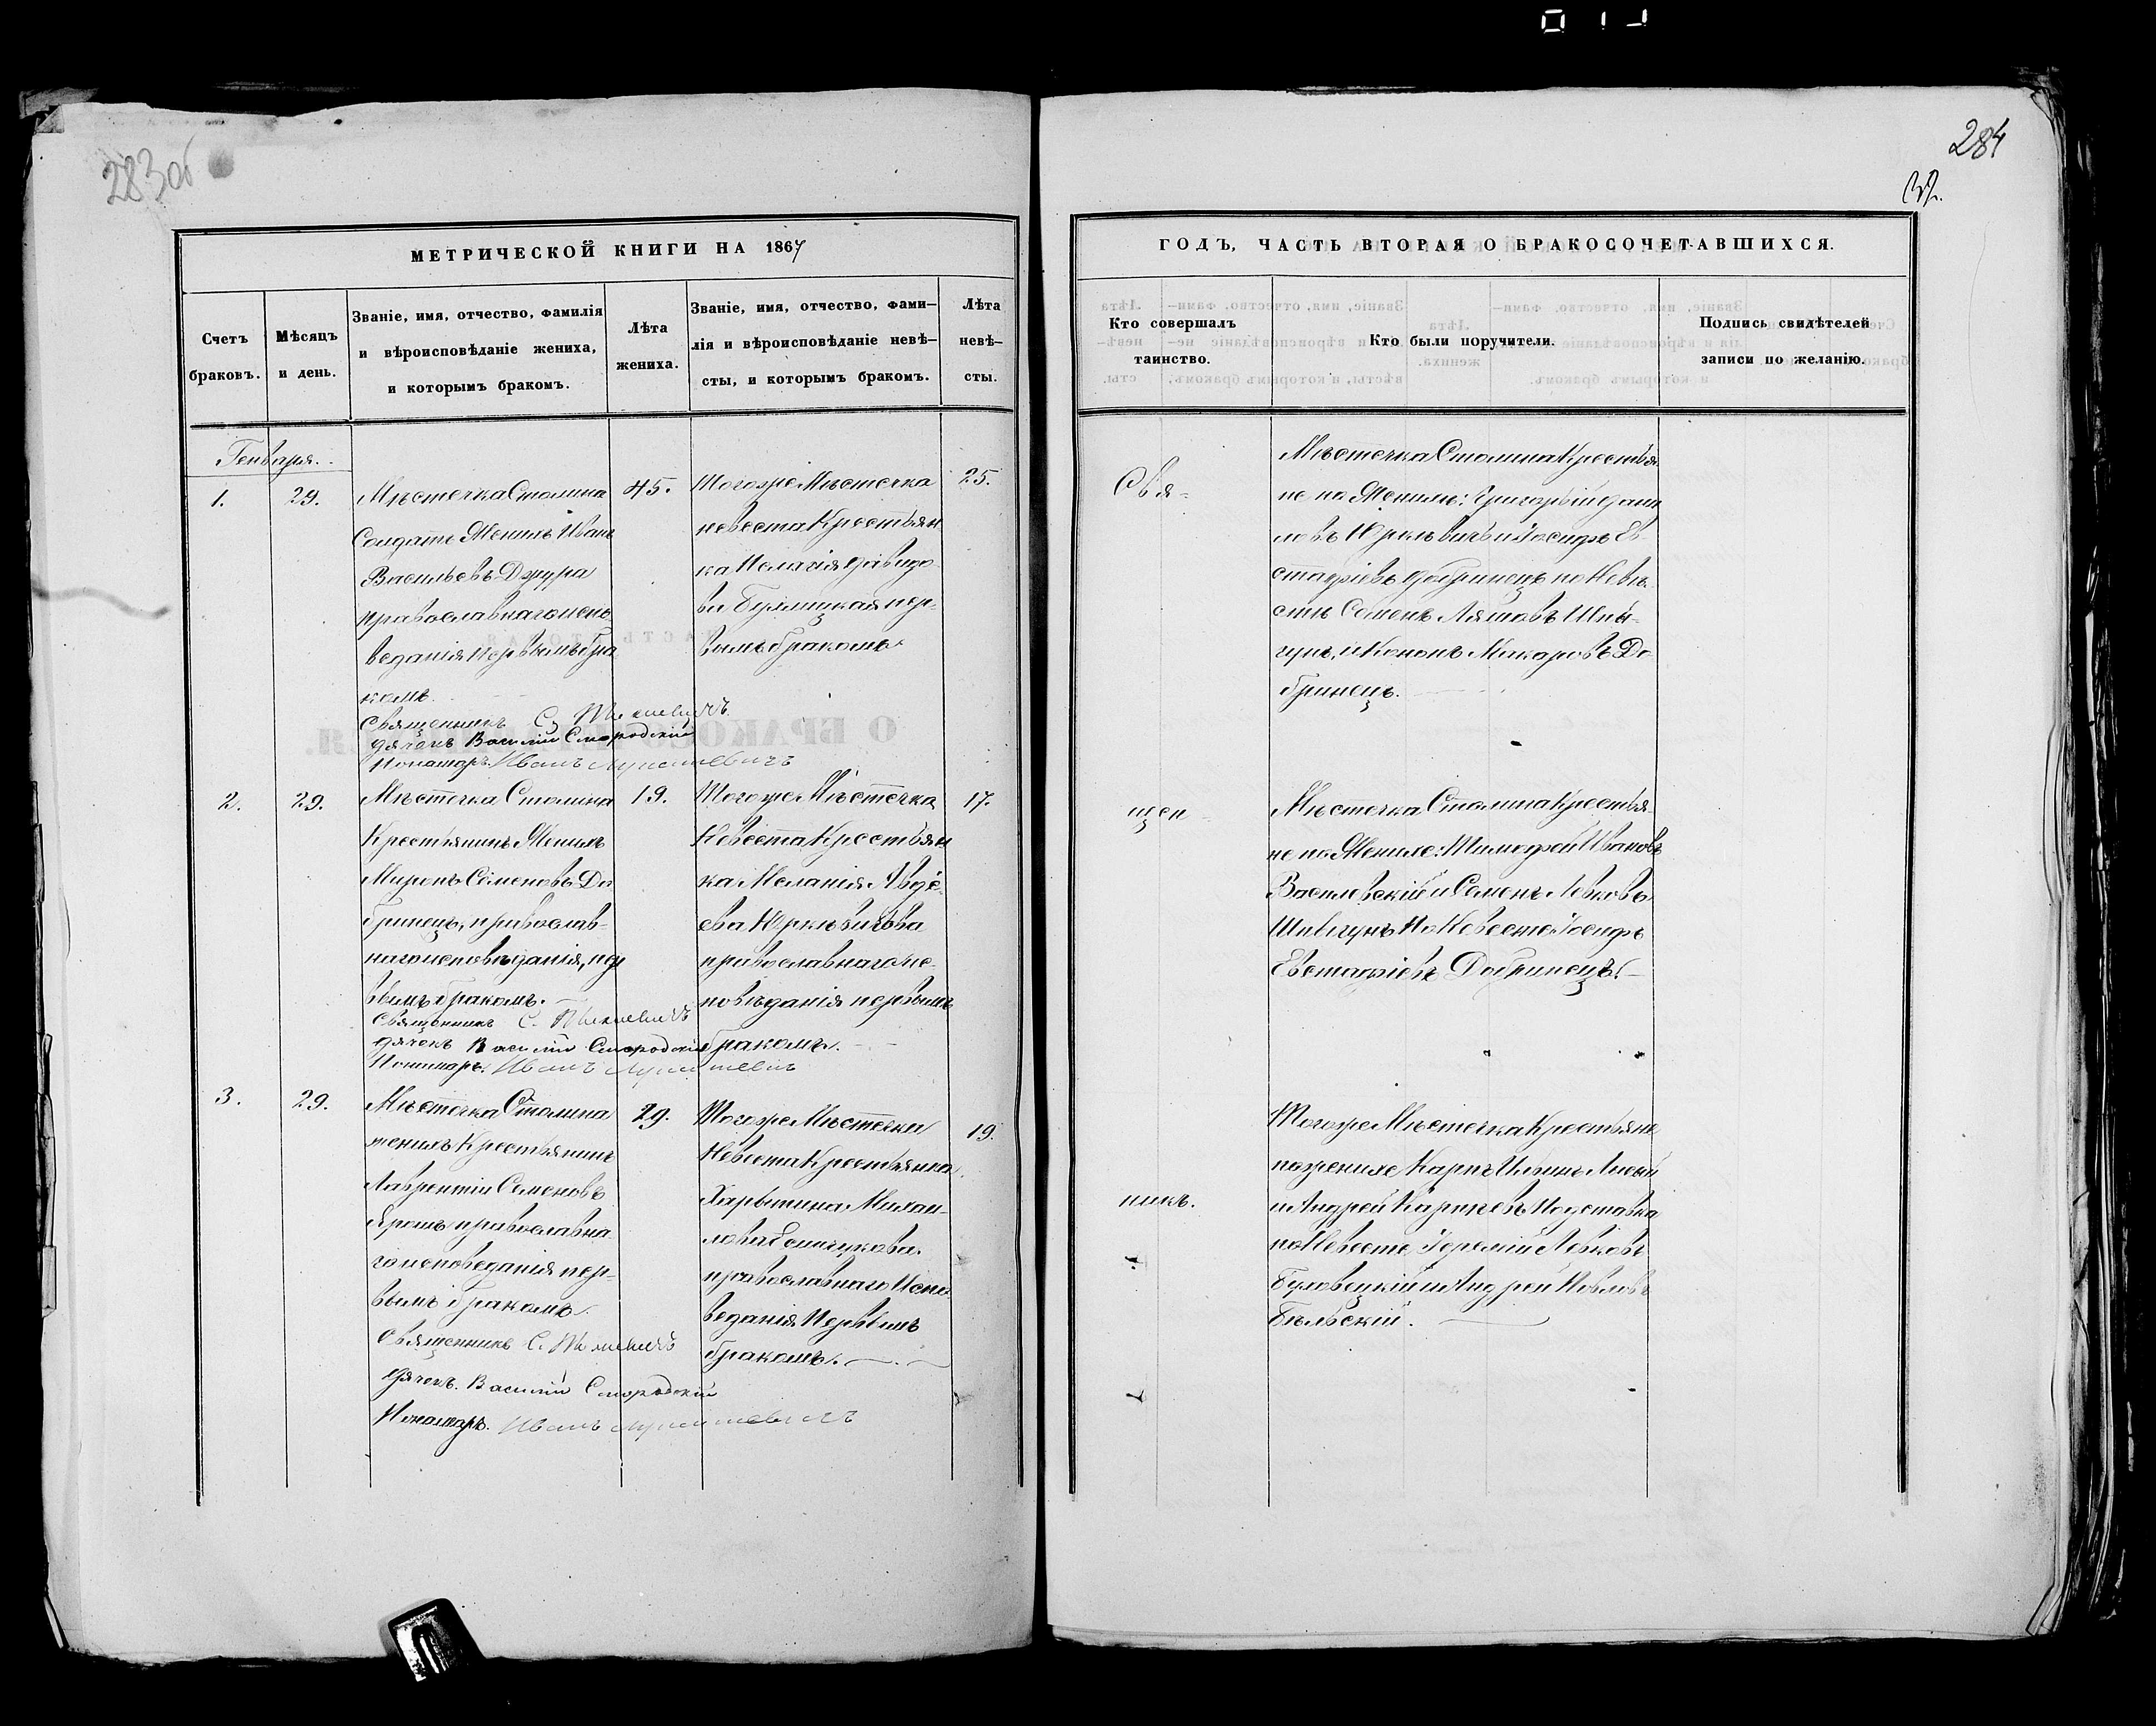 283 об
284
МЕТРИЧЕСКОЙ КНИГИ НА 1867
Счетъ
браковъ.
Мѣсяцъ
и день.
Званіе, имя, отчество, фамилія
и вѣроисповѣданіе жениха,
и которымъ бракомъ.
Лѣта
жениха.
Званіе, имя, отчество, фами—
лія и вѣроисповѣданіе невѣ—
сты, и которымъ бракомъ.
Лѣта
невѣ—
сты.
Генваря.
1.
29.
Мѣстечка Столина
Солдатъ Женихъ Иванъ
Васильевъ Джура
православнаго испо
веданія первымъ бра
комъ.
Священникъ С.
Дячекъ Василій Смородскій
Пономаръ Иванъ
45.
Тогоже Мѣстечка
невеста Крестьян
ка Пелагія Давидо
ва пер-
вымъ бракомъ
25.
2.
29.
Мѣстечка Столина
Крестьянинъ Женихъ
Миронъ Семеновъ До
бринецъ, православ-
наго исповѣданія, пер
вымъ бракомъ.
Священникъ С.
Дячекъ Василій Смородскій
Пономаръ. Иванъ
19.
Тогоже Мѣстечка
Невеста Крестьян
ка Меланія Авдѣ-
ева Юркѣвичова
православнаго ис-
повѣданія первымъ
бракомъ.
17.
3.
29.
Мѣстечка Столина
женихъ Крестьянинъ
Лаврентій Семеновъ
Ярошъ православна
го исповеданія пер-
вымъ бракомъ.
Священникъ С.
Дячекъ. Василій Смородскій
Пономаръ. Иванъ
29.
Тогоже Мѣстечка
Невеста Крестьянка
Харытина Михаи-
лова
православнаго Испо
веданія Первымъ
бракомъ.
19.
ГОДЪ, ЧАСТЬ ВТОРАЯ О БРАКОСОЧЕТАВШИХСЯ.
Кто совершалъ
таинство.
Кто были поручители.
Подпись свидѣтелей
записи по желанію.
Свя-
Мѣстечка Столина Крестья
не по Женихѣ: Григорій Дани
ловъ Юркѣвичъ и Іосифъ Ев-
стафіевъ Добринецъ по Невѣ-
стѣ Семенъ
и Кононъ Макаровъ До
бринецъ.
щен
Мѣстечка Столина Крестья-
не по Женихе: Тимофей Ивановъ
Василевскій и Семенъ Левковъ
По Невесте Іосифъ
Евстафіевъ Добринецъ.
никъ.
Тогоже Мѣстечка Крестьяне
по женихе Карпъ
и Андрей Карповъ
по Невесте, Іеремій Левковъ
и Андрей Павловъ
Бѣльскій.